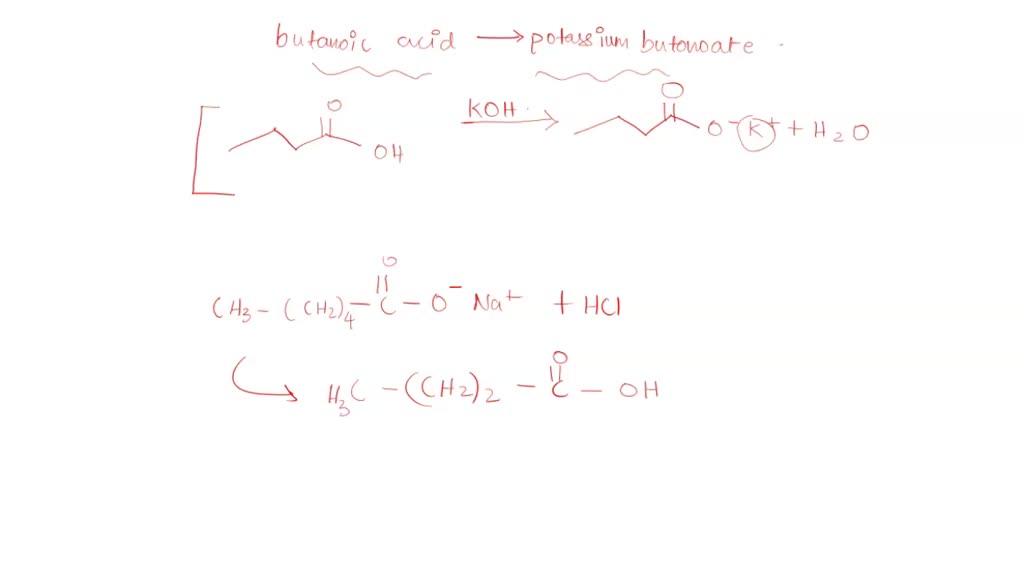 butanoic acid → potassium butonoate .
O
KOH .
O
OH
O⁻ K⁺ + H₂O
O
CH₃ – (CH₂)₄ – C – O⁻ Na⁺ + HCl
O
H₃C – (CH₂)₂ – C – OH